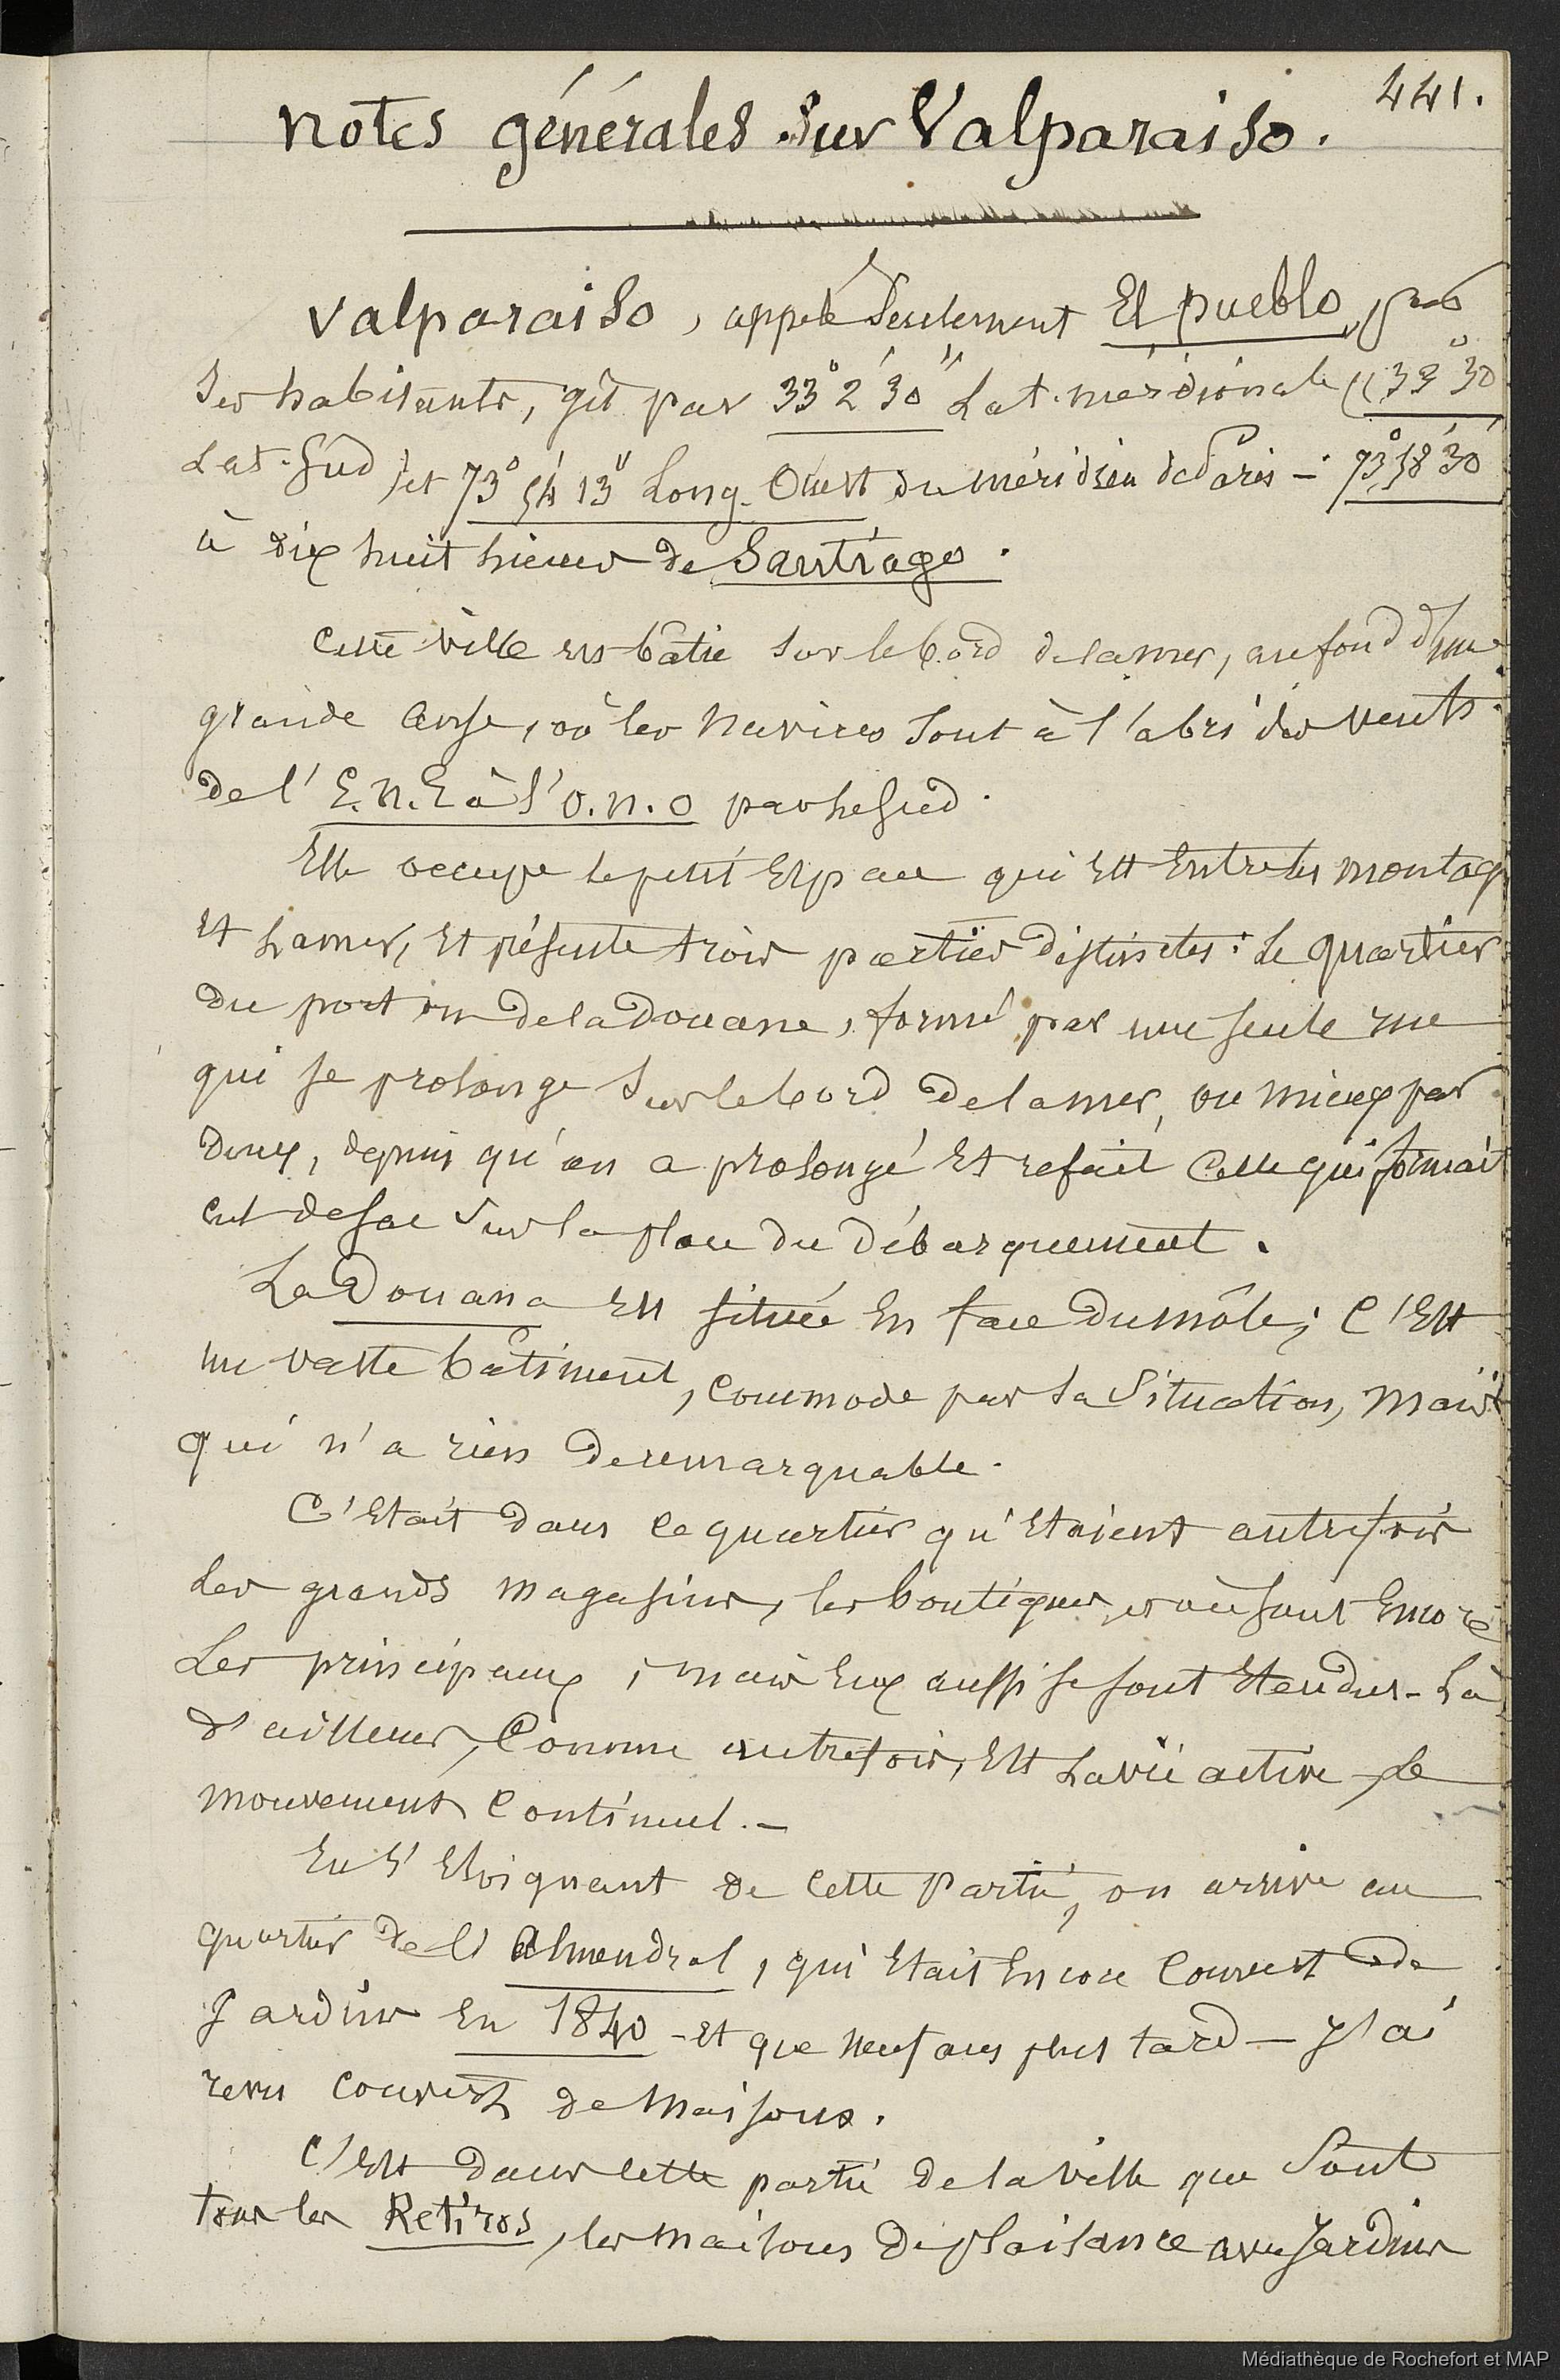 441.
notes générales sur Valparaiso.
Valparaiso, appelé seulement El pueblo, par
ses habitants, gît par 33° 2' 30" Lat. méridionale (33° 30
Lat. Sud) et 73° 54' 13" Long. Ouest du méridien de Paris - 73° 58' 30'
à dix huit lieues de Santiago.
Cette ville est bâtie sur le bord de la mer, au fond d'une
grande anse, où les navires sont à l'abri des vents
de l'E.N.E à l'O.N.O par le Sud.
Elle occupe le petit espace qui est entre les montag
et la mer, et présente trois parties distinctes : le quartier
du port ou de la Douane, formé par une seule rue
qui se prolonge sur le bord de la mer, ou mieux par
deux, depuis qu'on a prolongé et refait celle qui formait
cul de sac sur la place du débarquement.
La Douana est située en face du môle ; c'est
un vaste bâtiment, commode par sa situation, mais
qui n'a rien de remarquable.
C'était dans ce quartier qu'étaient autrefois
les grands magasins, les boutiques, et où sont encore
les principaux ; mais eux aussi se sont étendus - Là
d'ailleurs, comme autrefois, est la vie active, le
mouvement continuel. -
En s'éloignant de cette partie, on arrive au
quartier de l'Almendral, qui était encore couvert de
jardins en 1840 - et que neuf ans plus tard - j'ai
revu couvert de maisons.
C'est dans cette partie de la ville que sont
tous les Retiros, les maisons de plaisance avec jardins
Médiathèque de Rochefort et MAP